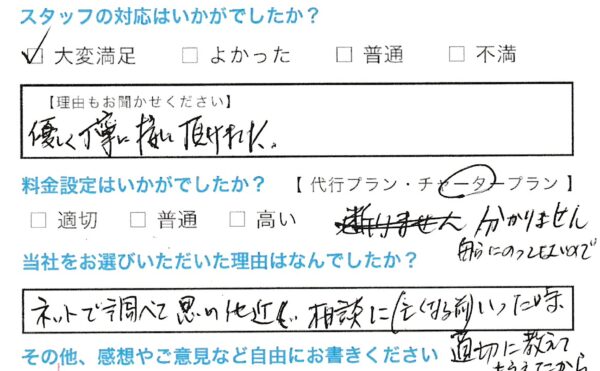 スタッフの対応はいかがでしたか？
大変満足 よかった 普通 不満
【理由もお聞かせください】
優しく丁寧に接して頂けました。
料金設定はいかがでしたか？ 【代行プラン・チャータープラン】
適切 普通 高い 分かりません
当社をお選びいただいた理由はなんでしたか？
ネットで調べて 相談に(亡くなる前)いった時
その他、感想やご意見など自由にお書きください 適切に教えて
もらえたから